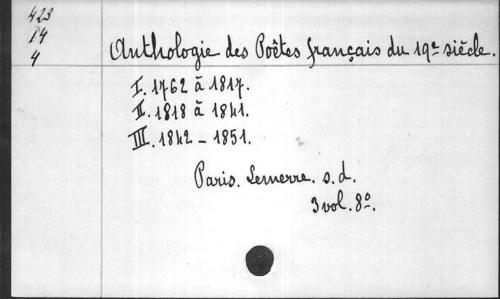 423
14
4
Anthologie des Poêtes français du 19e siécle.
I. 1762 à 1817.
II. 1818 à 1841.
III. 1842 - 1851.
Paris. Lemerre. s. d.
3 vol. 8o.